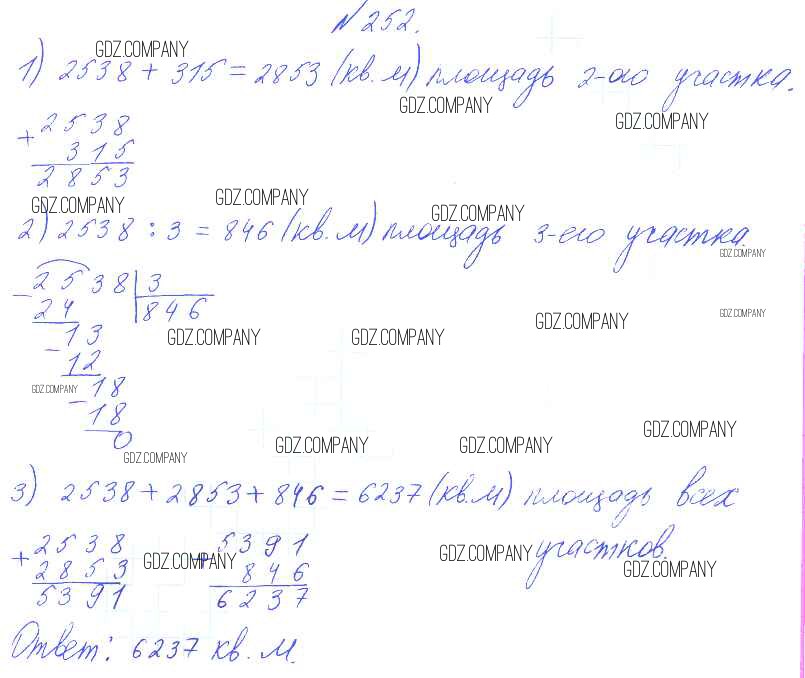 №252.
GDZ.COMPANY
1) 2538 + 315 = 2853 (кв. м) площадь 2-ого участка.
GDZ.COMPANY GDZ.COMPANY
+ 2538
315
2853
GDZ.COMPANY GDZ.COMPANY GDZ.COMPANY
2) 2538 : 3 = 846 (кв. м) площадь 3-его участка.
GDZ.COMPANY
- 2538 | 3
24 846
GDZ.COMPANY GDZ.COMPANY
13
GDZ.COMPANY GDZ.COMPANY
- 12
GDZ.COMPANY 18
- 18
0
GDZ.COMPANY GDZ.COMPANY GDZ.COMPANY
GDZ.COMPANY
3) 2538 + 2853 + 846 = 6237 (кв. м) площадь всех
участков.
+ 2538 + 5391
2853 846
5391 6237
GDZ.COMPANY GDZ.COMPANY GDZ.COMPANY
Ответ: 6237 кв. м.